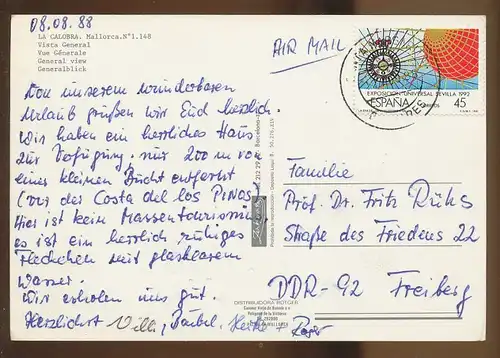 08.08.88
LA CALOBRA. Mallorca.N°1.148
Vista General
Vue Générale
General view
Generalblick
Von unserem wunderbaren
Urlaub grüßen wir Euch herzlich.
Wir haben ein herrliches Haus
zur Verfügung, nur 200 m von
einer kleinen Bucht entfernt
(Cos des Costa del los PINOS)
Hier ist kein Massentourismus
es ist ein herrlich ruhiges
Fleckchen mit glasklarem
Wasser.
Wir erholen uns gut.
Herzlichst Willi, Bärbel, Heike + Roger
AIR MAIL
EXPOSICION UNIVERSAL SEVILLA 1992
ESPAÑA CORREOS 45
DISTRIBUIDORA ROTGER
Familie
Prof. Dr. Fritz Rühs
Straße des Friedens 22
DDR-92 Freiberg